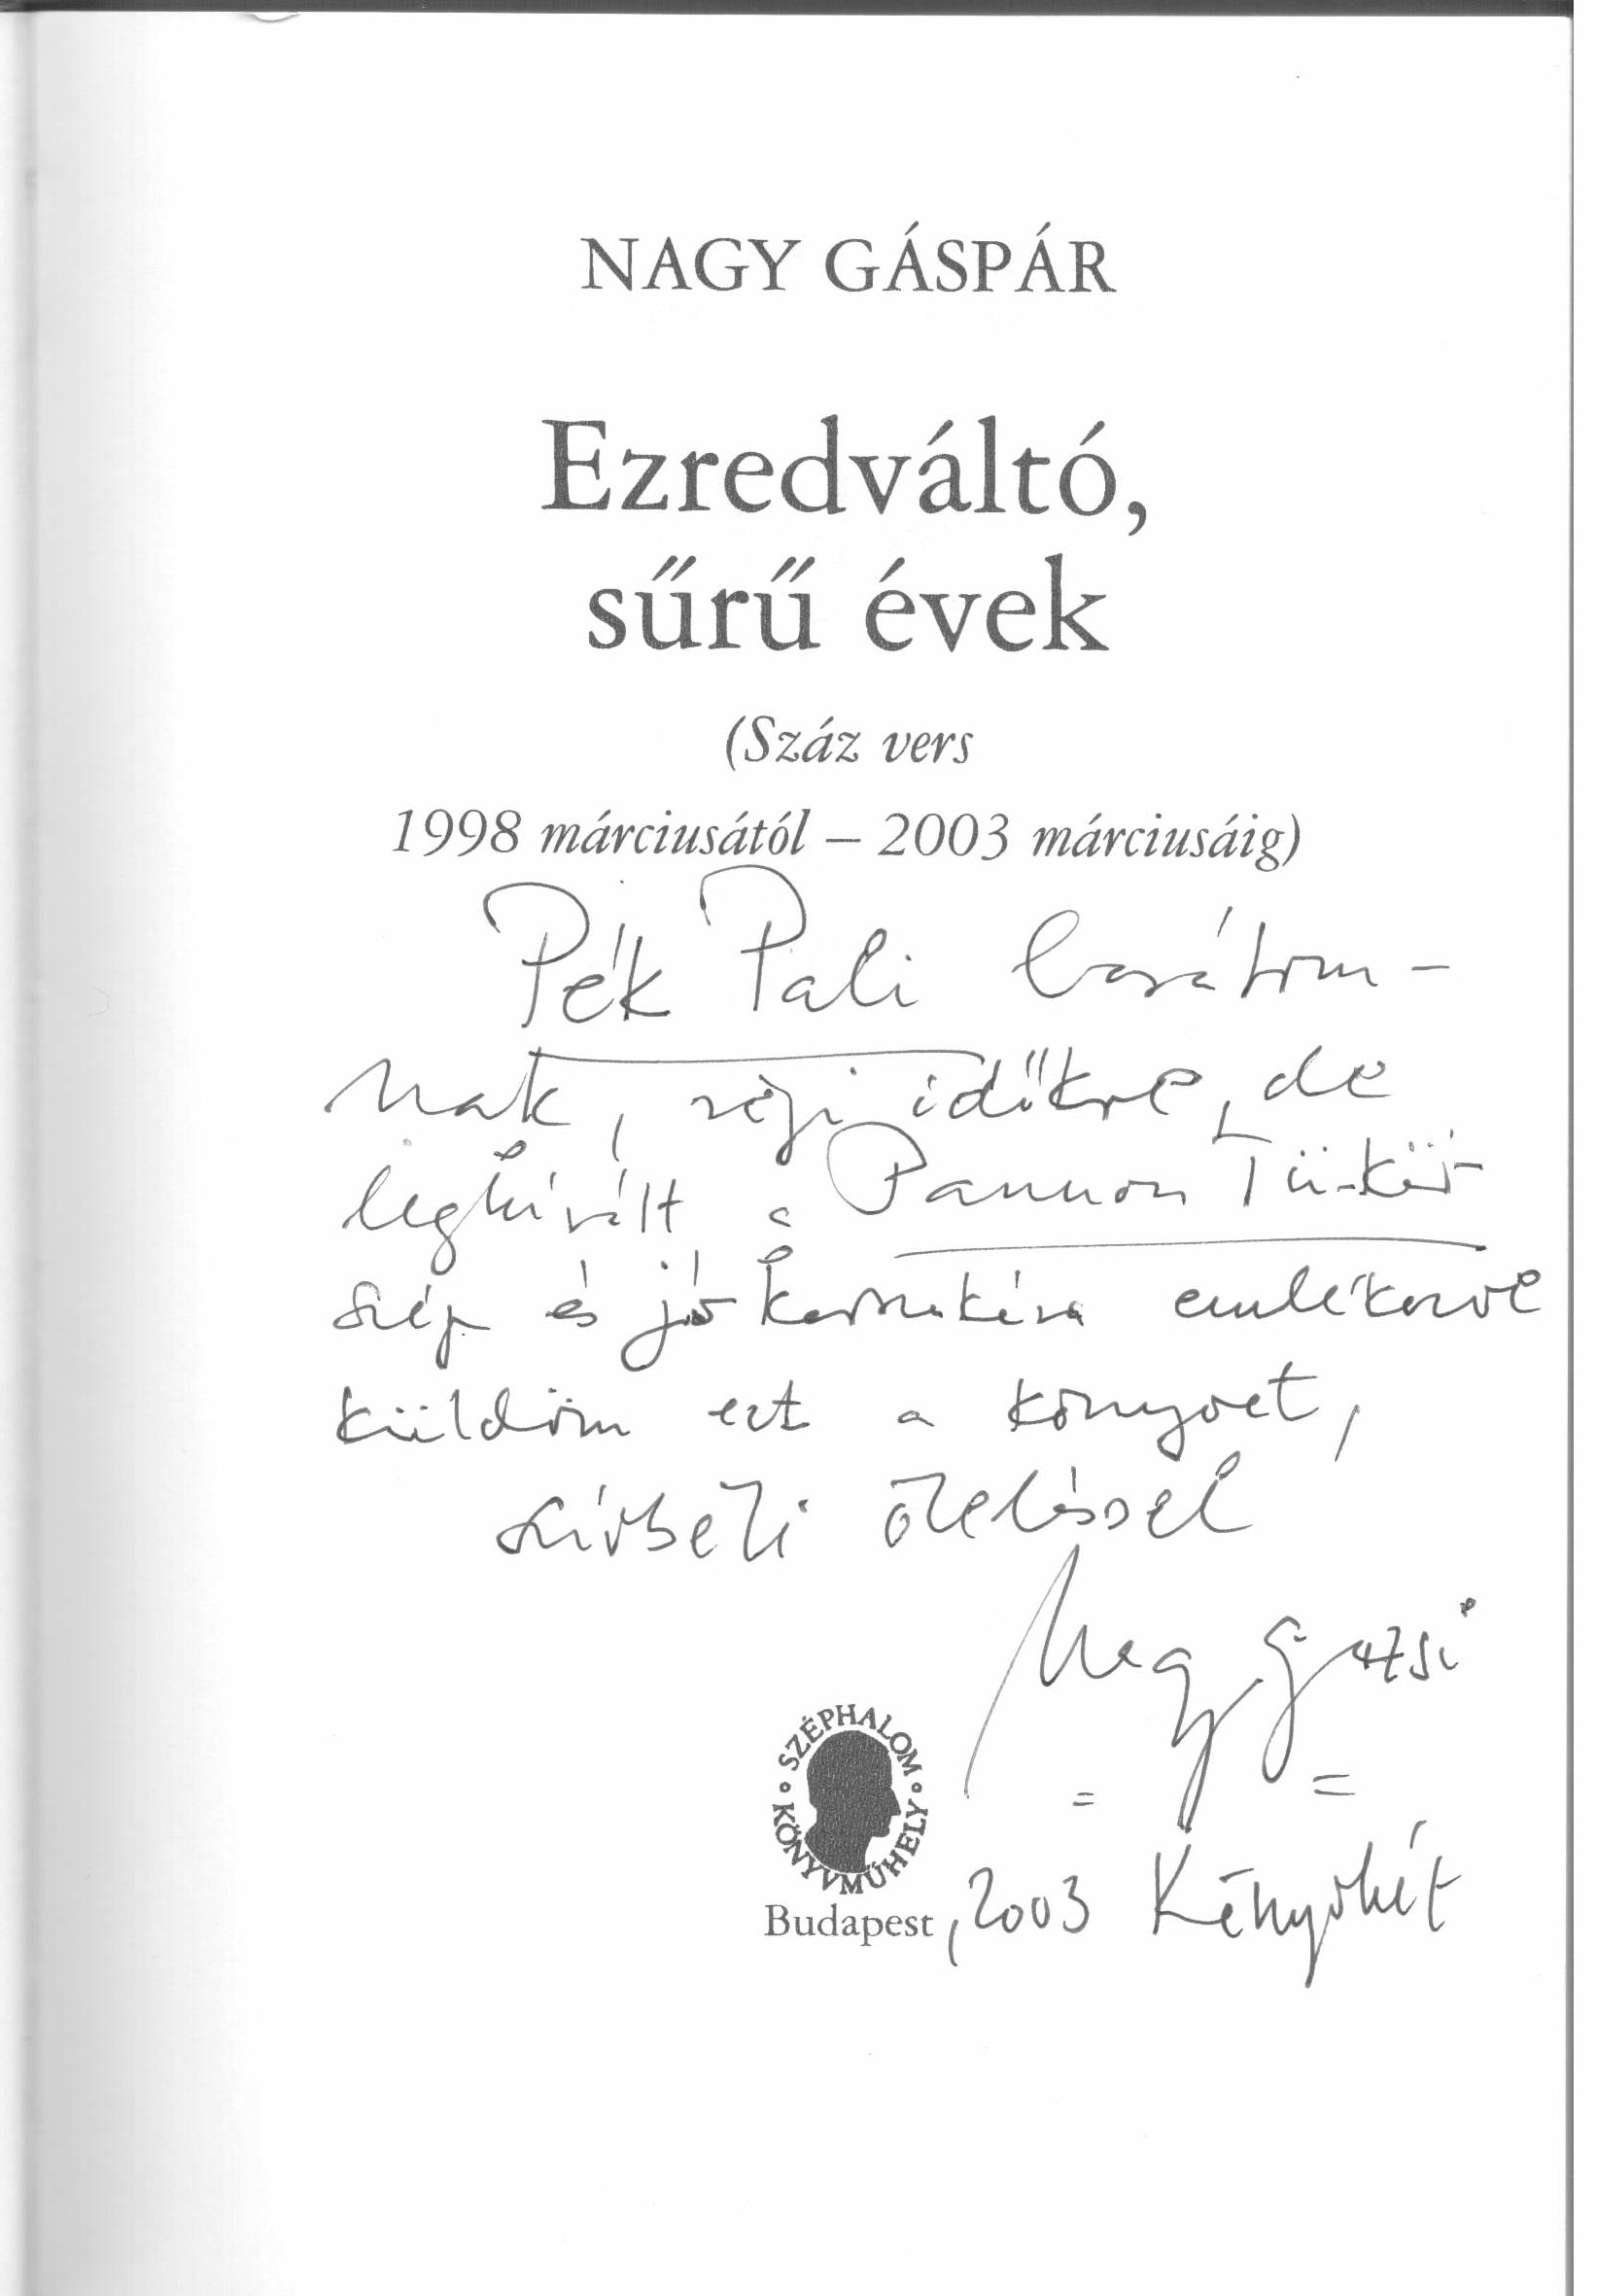 NAGY GÁSPÁR
Ezredváltó,
sűrű évek
(Száz vers
1998 márciusától – 2003 márciusáig)
Pék Pali barátom-
nak, régi időkre, de
legkivált a Pannon Tükör
szép és jó korszakára emlékezve
küldöm ezt a könyvet,
szívbeli öleléssel
Nagy Gazsi
SZÉPHALOM KÖNYVMŰHELY
Budapest, 2003 Könyvhét